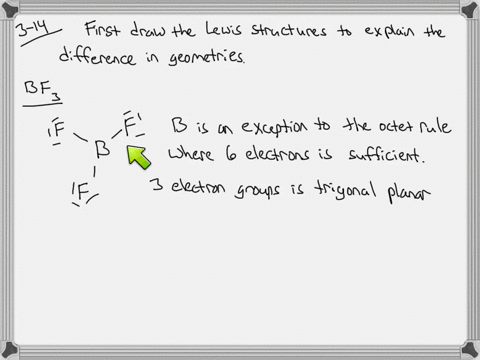 3-14 First draw the Lewis structures to explain the
difference in geometries.
BF3
F F B is an exception to the octet rule
B where 6 electrons is sufficient.
F 3 electron groups is trigonal planar